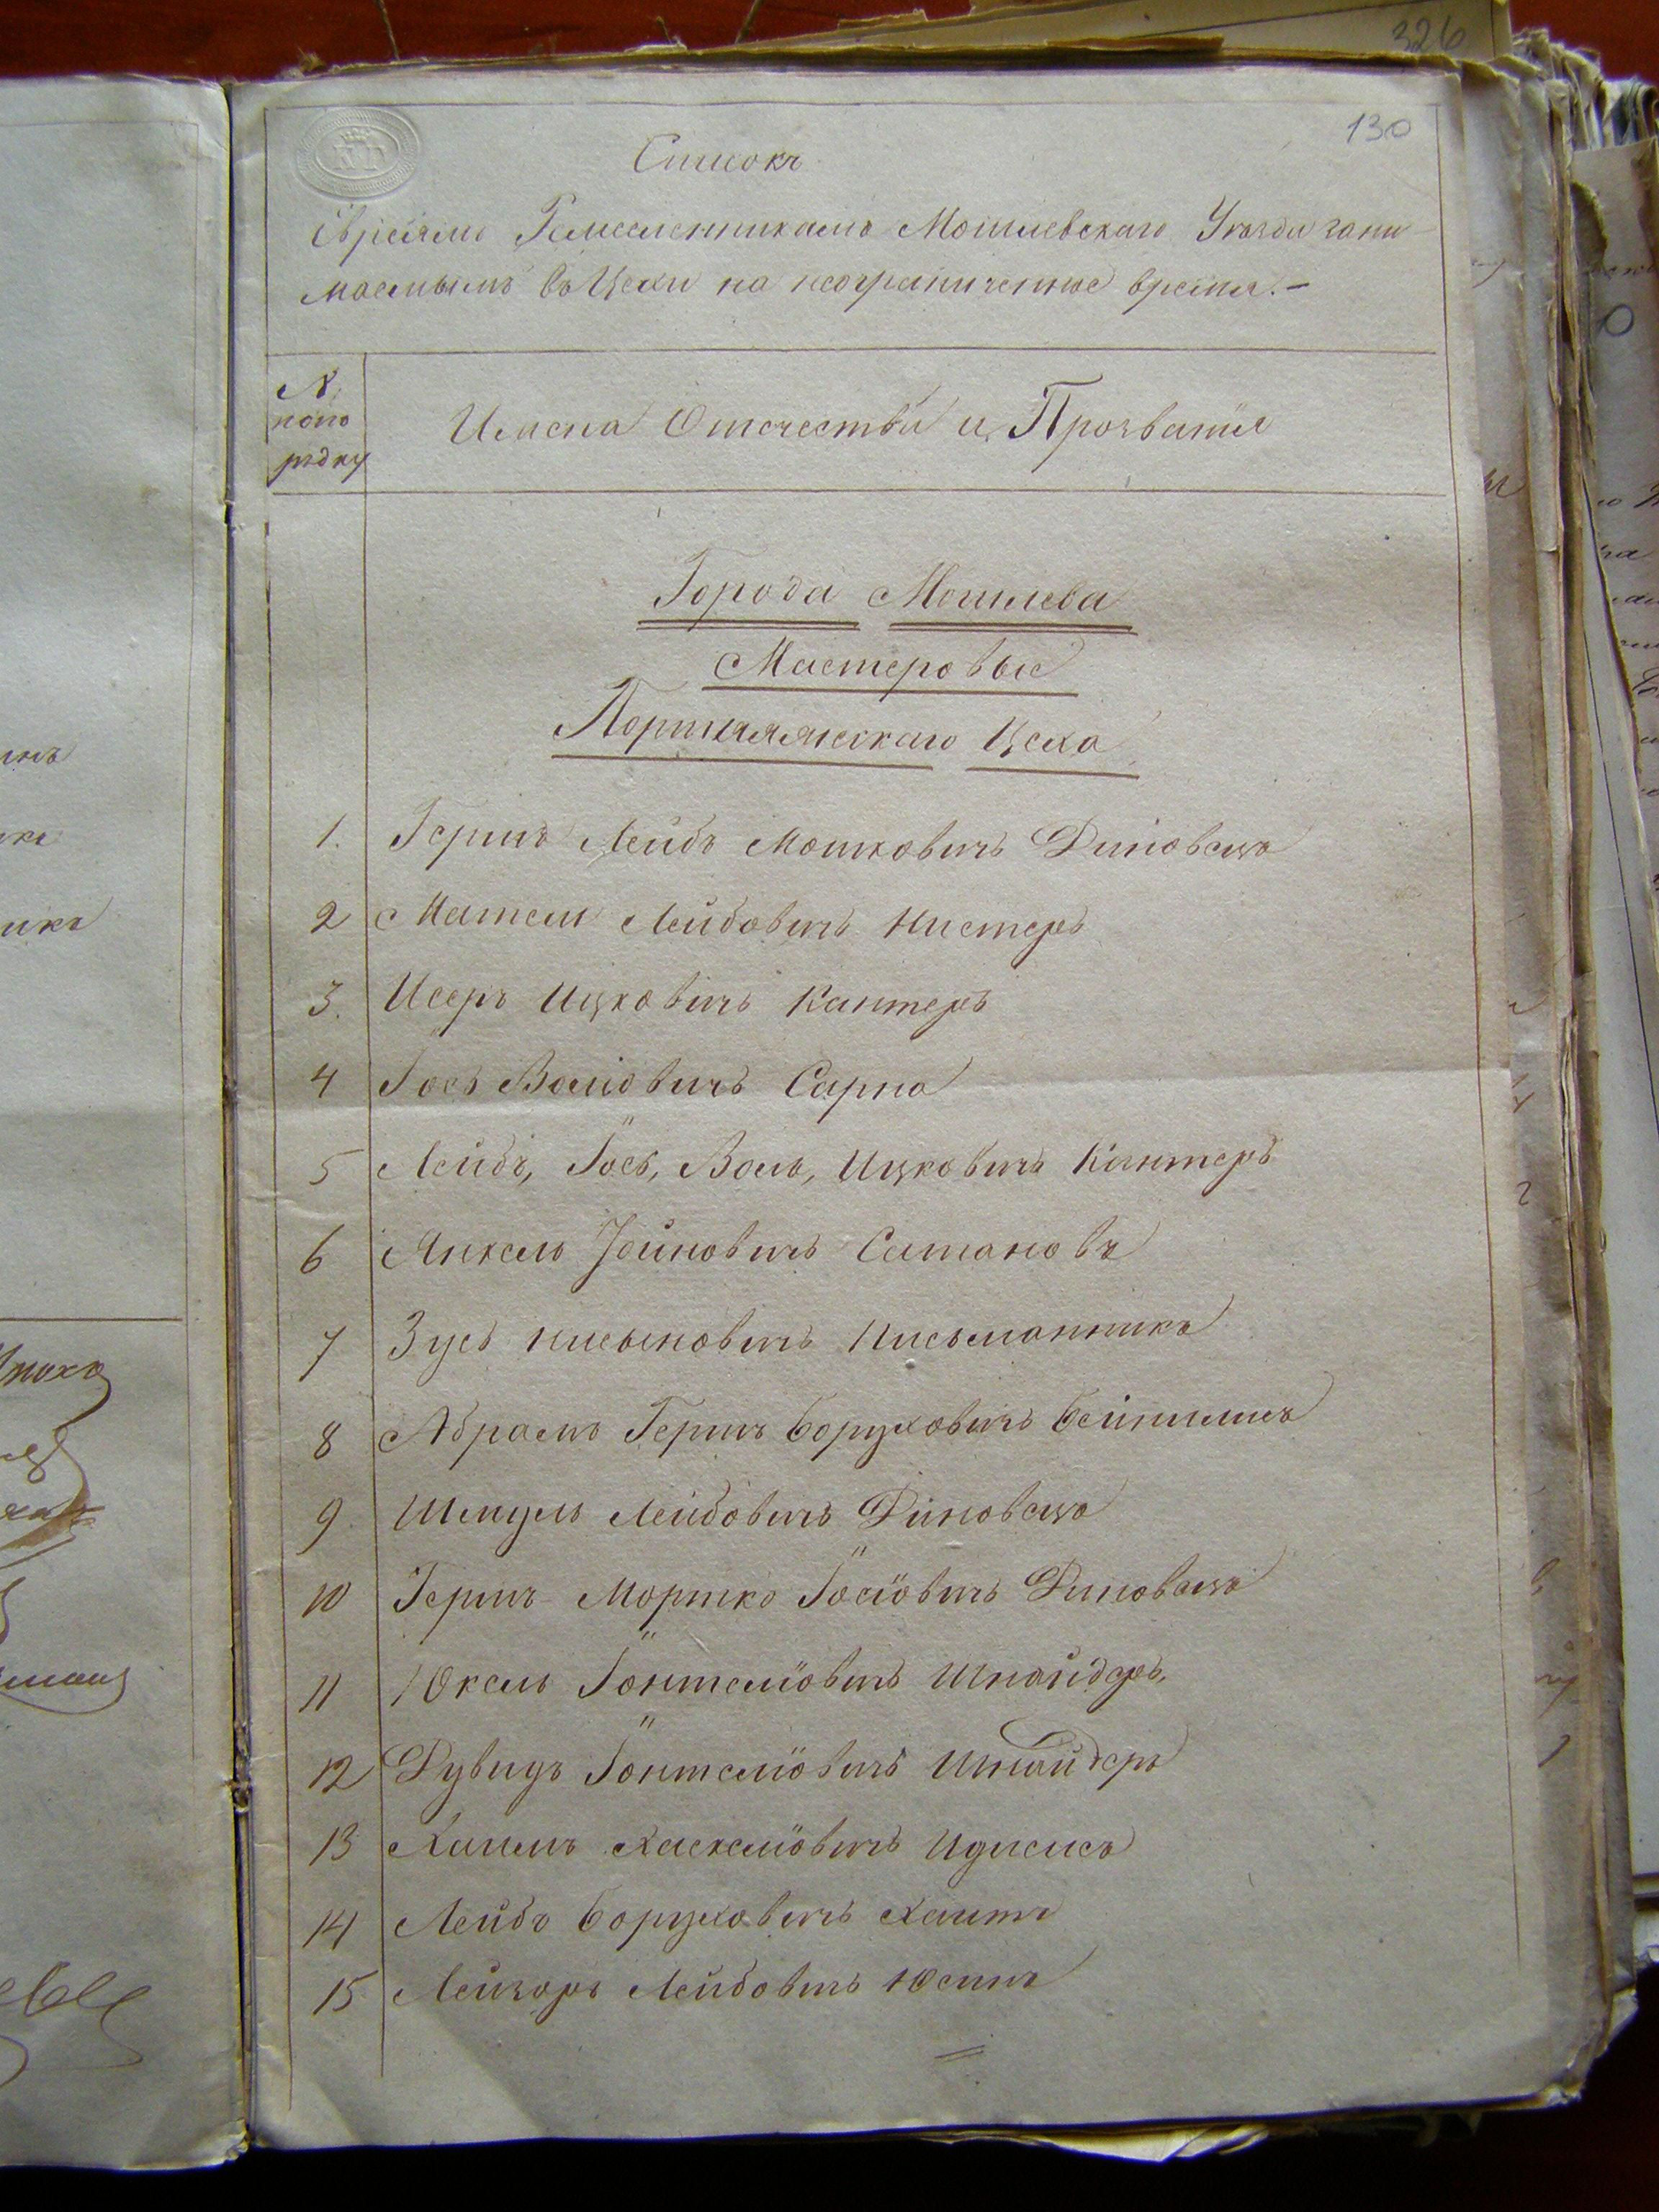 326
130
Списокъ
Евреямъ Ремесленникамъ Могилевскаго Уѣзда зани-
маемымъ въ Цехи на неограниченное время.-
N
попо
рядку
Имена Отчества и Прозванія
Города Могилева
Мастеровые
Портняжскаго Цеха
1. Гершъ Лейбъ Мошковичъ Диновецъ
2 Мотель Лейбовичъ Нистеръ
3. Исеръ Ицковичъ Кантеръ
4 Іось Волїовичъ Сарна
5 Лейбъ, Іось, Воль, Ицковичъ Кантеръ
6 Янкель Іойновичъ Сатановъ
7 Зусь Нисыновичъ Письманникъ
8 Абрамъ Гершъ Боруховичъ
9. Шмуль Лейбовичъ Диновецъ
10 Гершъ Мортко Іосїовичъ Диновецъ
11 Юкель Іонтелїовичъ Шнайдеръ.
12 Дувидъ Іонтелїовичъ Шнайдеръ
13 Хаимъ Хаскелїовичъ
14 Лейбъ Боруховичъ Хаитъ
15 Лейзоръ Лейбовичъ